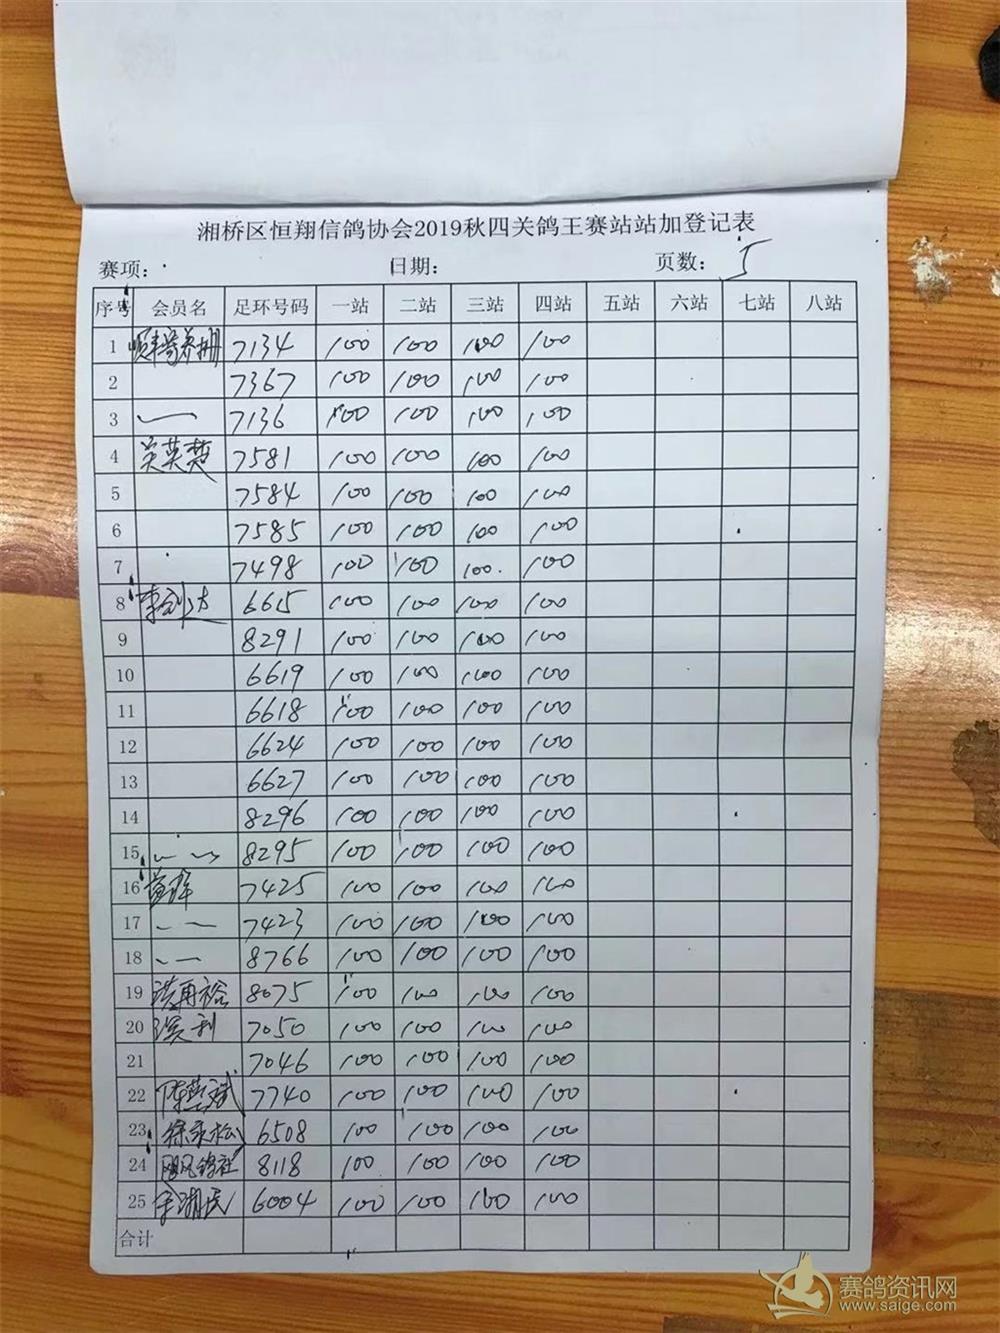 湘桥区恒翔信鸽协会2019秋四关鸽王赛站站加登记表
赛项: 日期: 页数: 5
序号 会员名 足环号码 一站 二站 三站 四站 五站 六站 七站 八站
1 7134 100 100 100 100
2 7367 100 100 100 100
3 7136 100 100 100 100
4 吴英楚 7581 100 100 100 100
5 7584 100 100 100 100
6 7585 100 100 100 100
7 7498 100 100 100 100
8 6615 100 100 100 100
9 8291 100 100 100 100
10 6619 100 100 100 100
11 6618 100 100 100 100
12 6624 100 100 100 100
13 6627 100 100 100 100
14 8296 100 100 100 100
15 8295 100 100 100 100
16 7425 100 100 100 100
17 7423 100 100 100 100
18 8766 100 100 100 100
19 洪再裕 8075 100 100 100 100
20 7050 100 100 100 100
21 7046 100 100 100 100
22 7740 100 100 100 100
23 徐永松 6508 100 100 100 100
24 飓风鸽社 8118 100 100 100 100
25 6004 100 100 100 100
合计
赛鸽资讯网
www.saige.com